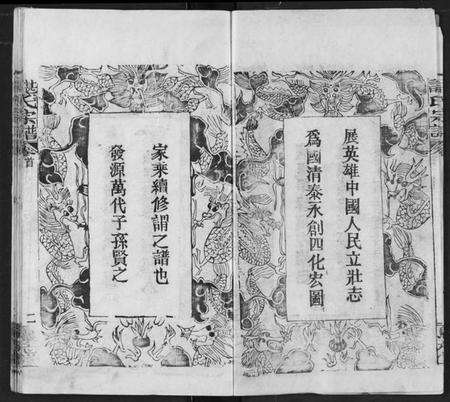 展英雄中國人民立壯志
爲國清泰永創四化宏圖
家乘續修謂之譜也
發源萬代子孫賢之
氏宗譜
首
二